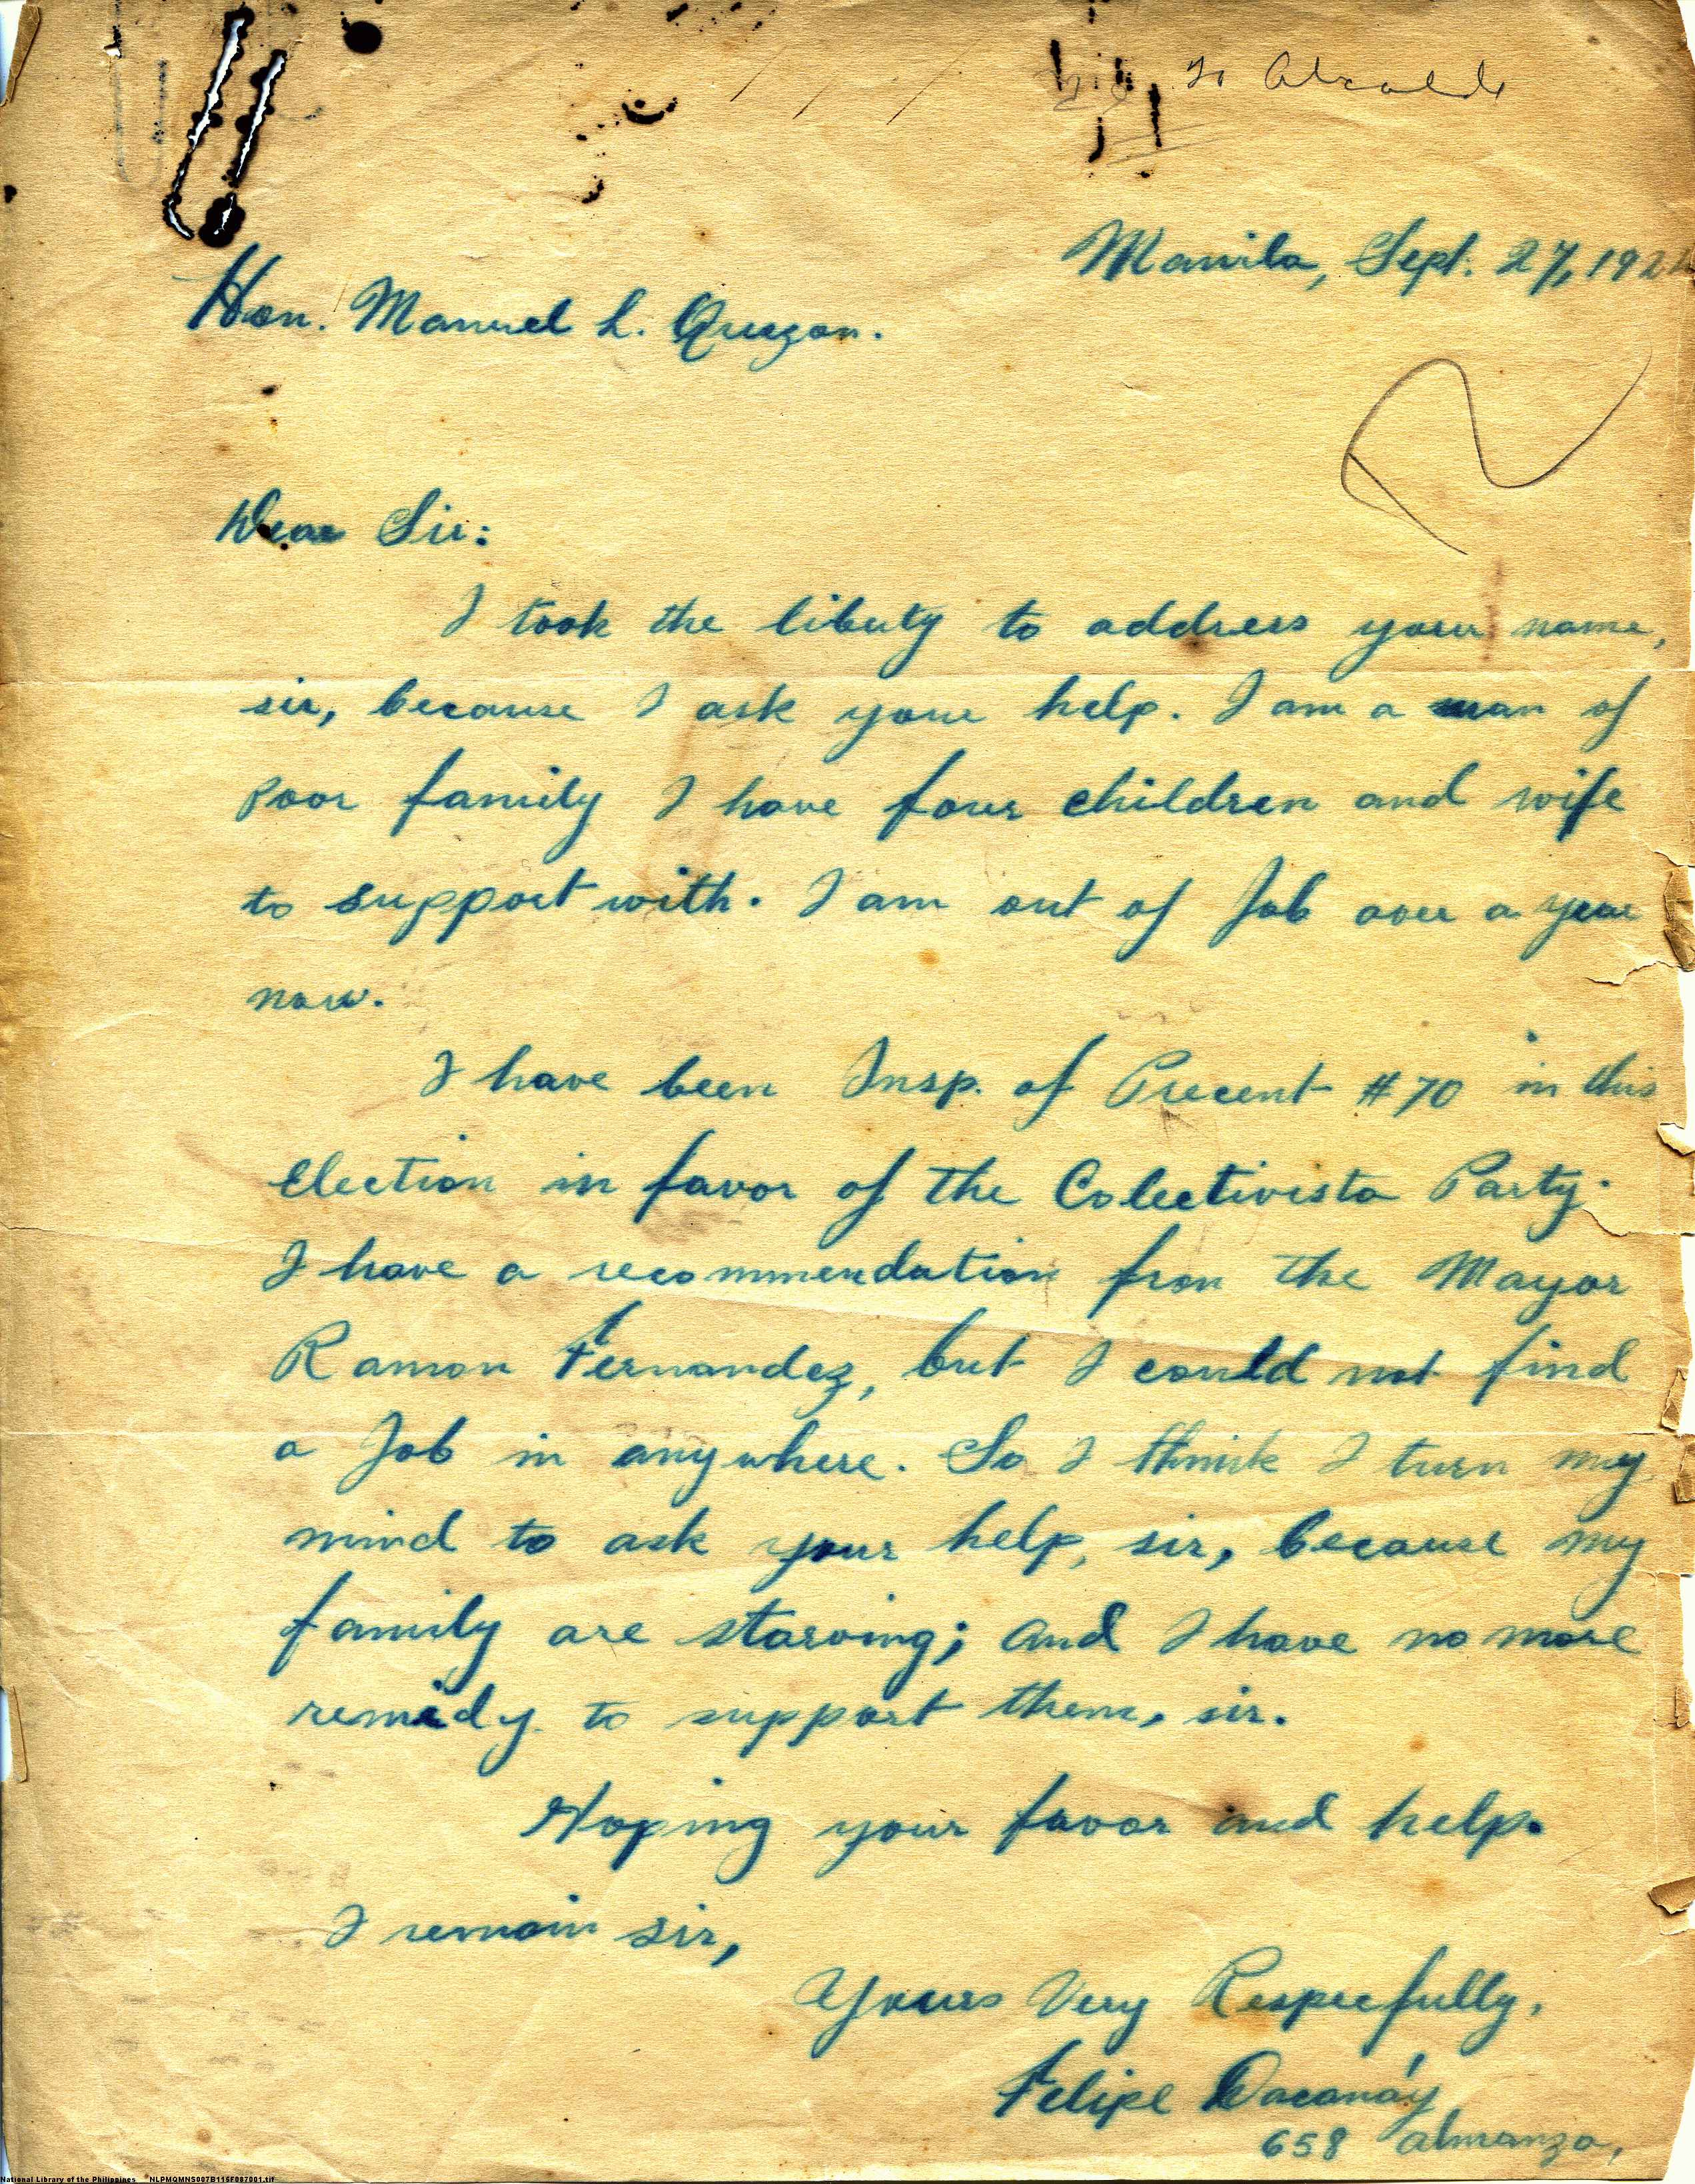 To Alcalde
Manila, Sept. 27, 192
Hon. Manuel L. Quezon.
Dear Sir:
I took the liberty to address your name,
sir, because I ask your help. I am a man of
poor family I have four children and wife
to support with. I am out of Job over a year
now.
I have been Insp. of Precent #70 in this
election in favor of the Colectivista Party.
I have a recommendation from the Mayor
Ramon Fernandez, but I could not find
a Job in anywhere. So I think I turn my
mind to ask your help, sir, because my
family are starving; and I have no more
remedy to support them, sir.
Hoping your favor and help.
I remain sir,
Yours Very Respecfully,
Felipe Dacanáy
658 Almanza,
National Library of the Philippines NLPMQMNS007B115F087001.tif